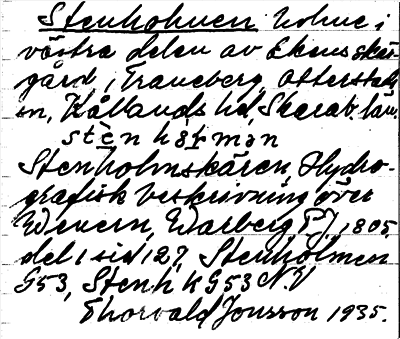 Stenholmen holme i
västra delen av Ekens skär-
gård, Traneberg, Otterstads
sn, Kållands hd, Skarab. län.
stèn hål man
Stenholmskären, Hydro-
grafisk beskrivning över
Wenern, Warberg P.J, 1805,
del 1 sid 127, Stenholmen
G53, Stenh k G53 NV
Thorvald Jonsson 1935.